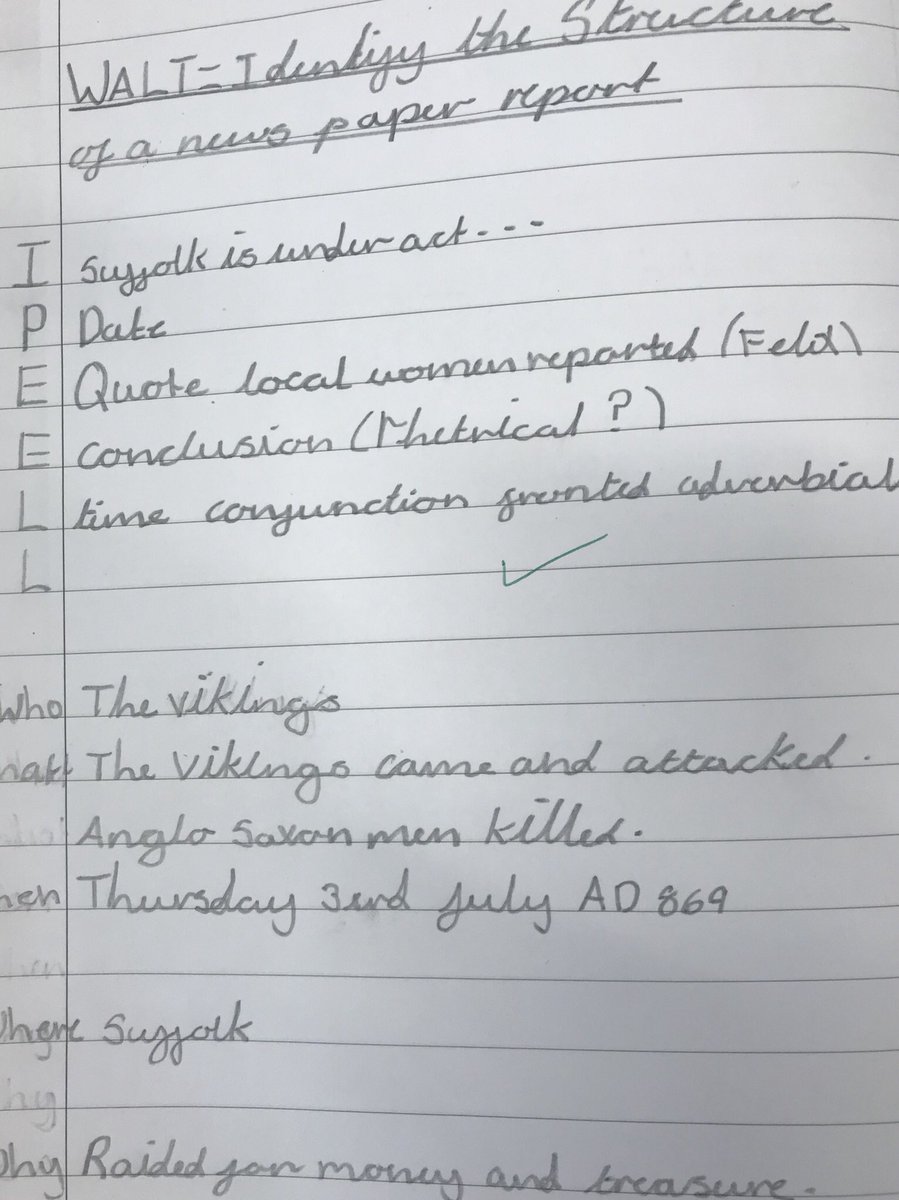 WALT = Identify the Structure
of a news paper report
I Suffolk is under act---
P Date
E Quote local women reported (Feld)
E conclusion (Rhetrical ?)
L time conjunction fronted adverbial
L
Who The vikings
hatt The Vikings came and attacked.
Anglo Saxon men killed.
hen Thursday 3erd July AD 869
here Suffolk
hy
hy Raided for money and treasure.